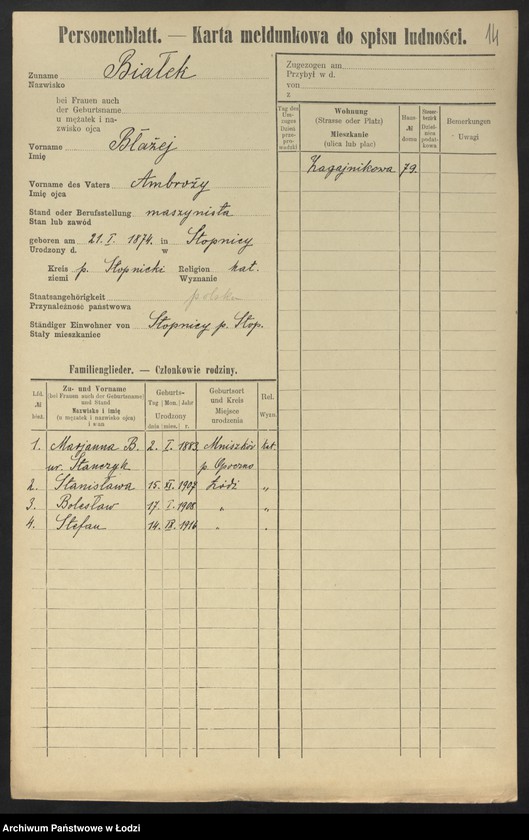 14
Personenblatt. — Karta meldunkowa do spisu ludności.
Zuname Białek
Nazwisko
bei Frauen auch
der Geburtsname
u mężatek i na-
zwisko ojca
Vorname Błażej
Imię
Vorname des Vaters Ambroży
Imię ojca
Stand oder Berufsstellung maszynista
Stan lub zawód
geboren am 21. I. 1874. in Stopnicy
Urodzony d. w
Kreis p. Stopnicki Religion kat.
ziemi Wyznanie
Staatsangehörigkeit
Przynależność państwowa
Ständiger Einwohner von Stopnicy p. Stop.
Stały mieszkaniec
Familienglieder. — Członkowie rodziny.
Lfd. № bież.
Zu- und Vorname
(bei Frauen auch der Geburtsname)
und Stand
Nazwisko i imię
(u mężatek i nazwisko ojca)
i stan
Geburts-
Tag | Mon. | Jahr
Urodzony
dnia | mies. | r.
Geburtsort
und Kreis
Miejsce
urodzenia
Rel.
Wyzn.
1. Marjanna B. 2. I. 1883. kat.
ur. Stańczyk p. Opoczno
2. Stanisława 15. XI. 1907 Łódź „
3. Bolesław 17. I. 1908 „ „
4. Stefan 14. IX. 1916 „ „
Zugezogen am
Przybył w d.
von
z
Tag des
Um-
zuges
Dzień
prze-
pro-
wadzki
Wohnung
(Strasse oder Platz)
Mieszkanie
(ulica lub plac)
Haus-
№
domu
Steuer-
bezirk
Dziel-
nica
podat-
kowa
Bemerkungen
Uwagi
Zagajnikowa 79.
Archiwum Państwowe w Łodzi